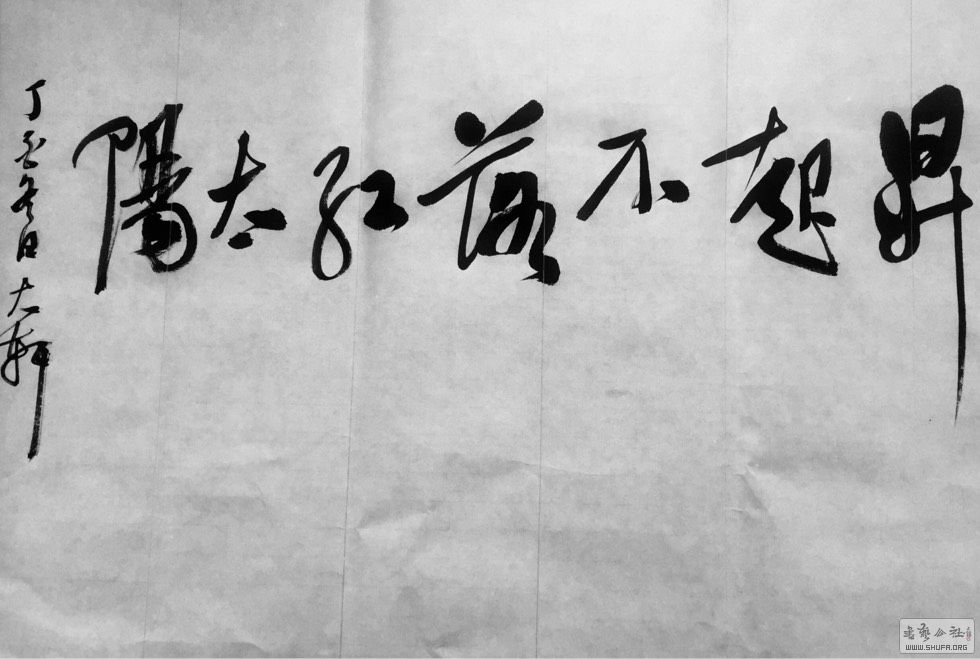 昇起不落红太陽
丁酉冬日大軒
書藝公社
WWW.SHUFA.ORG